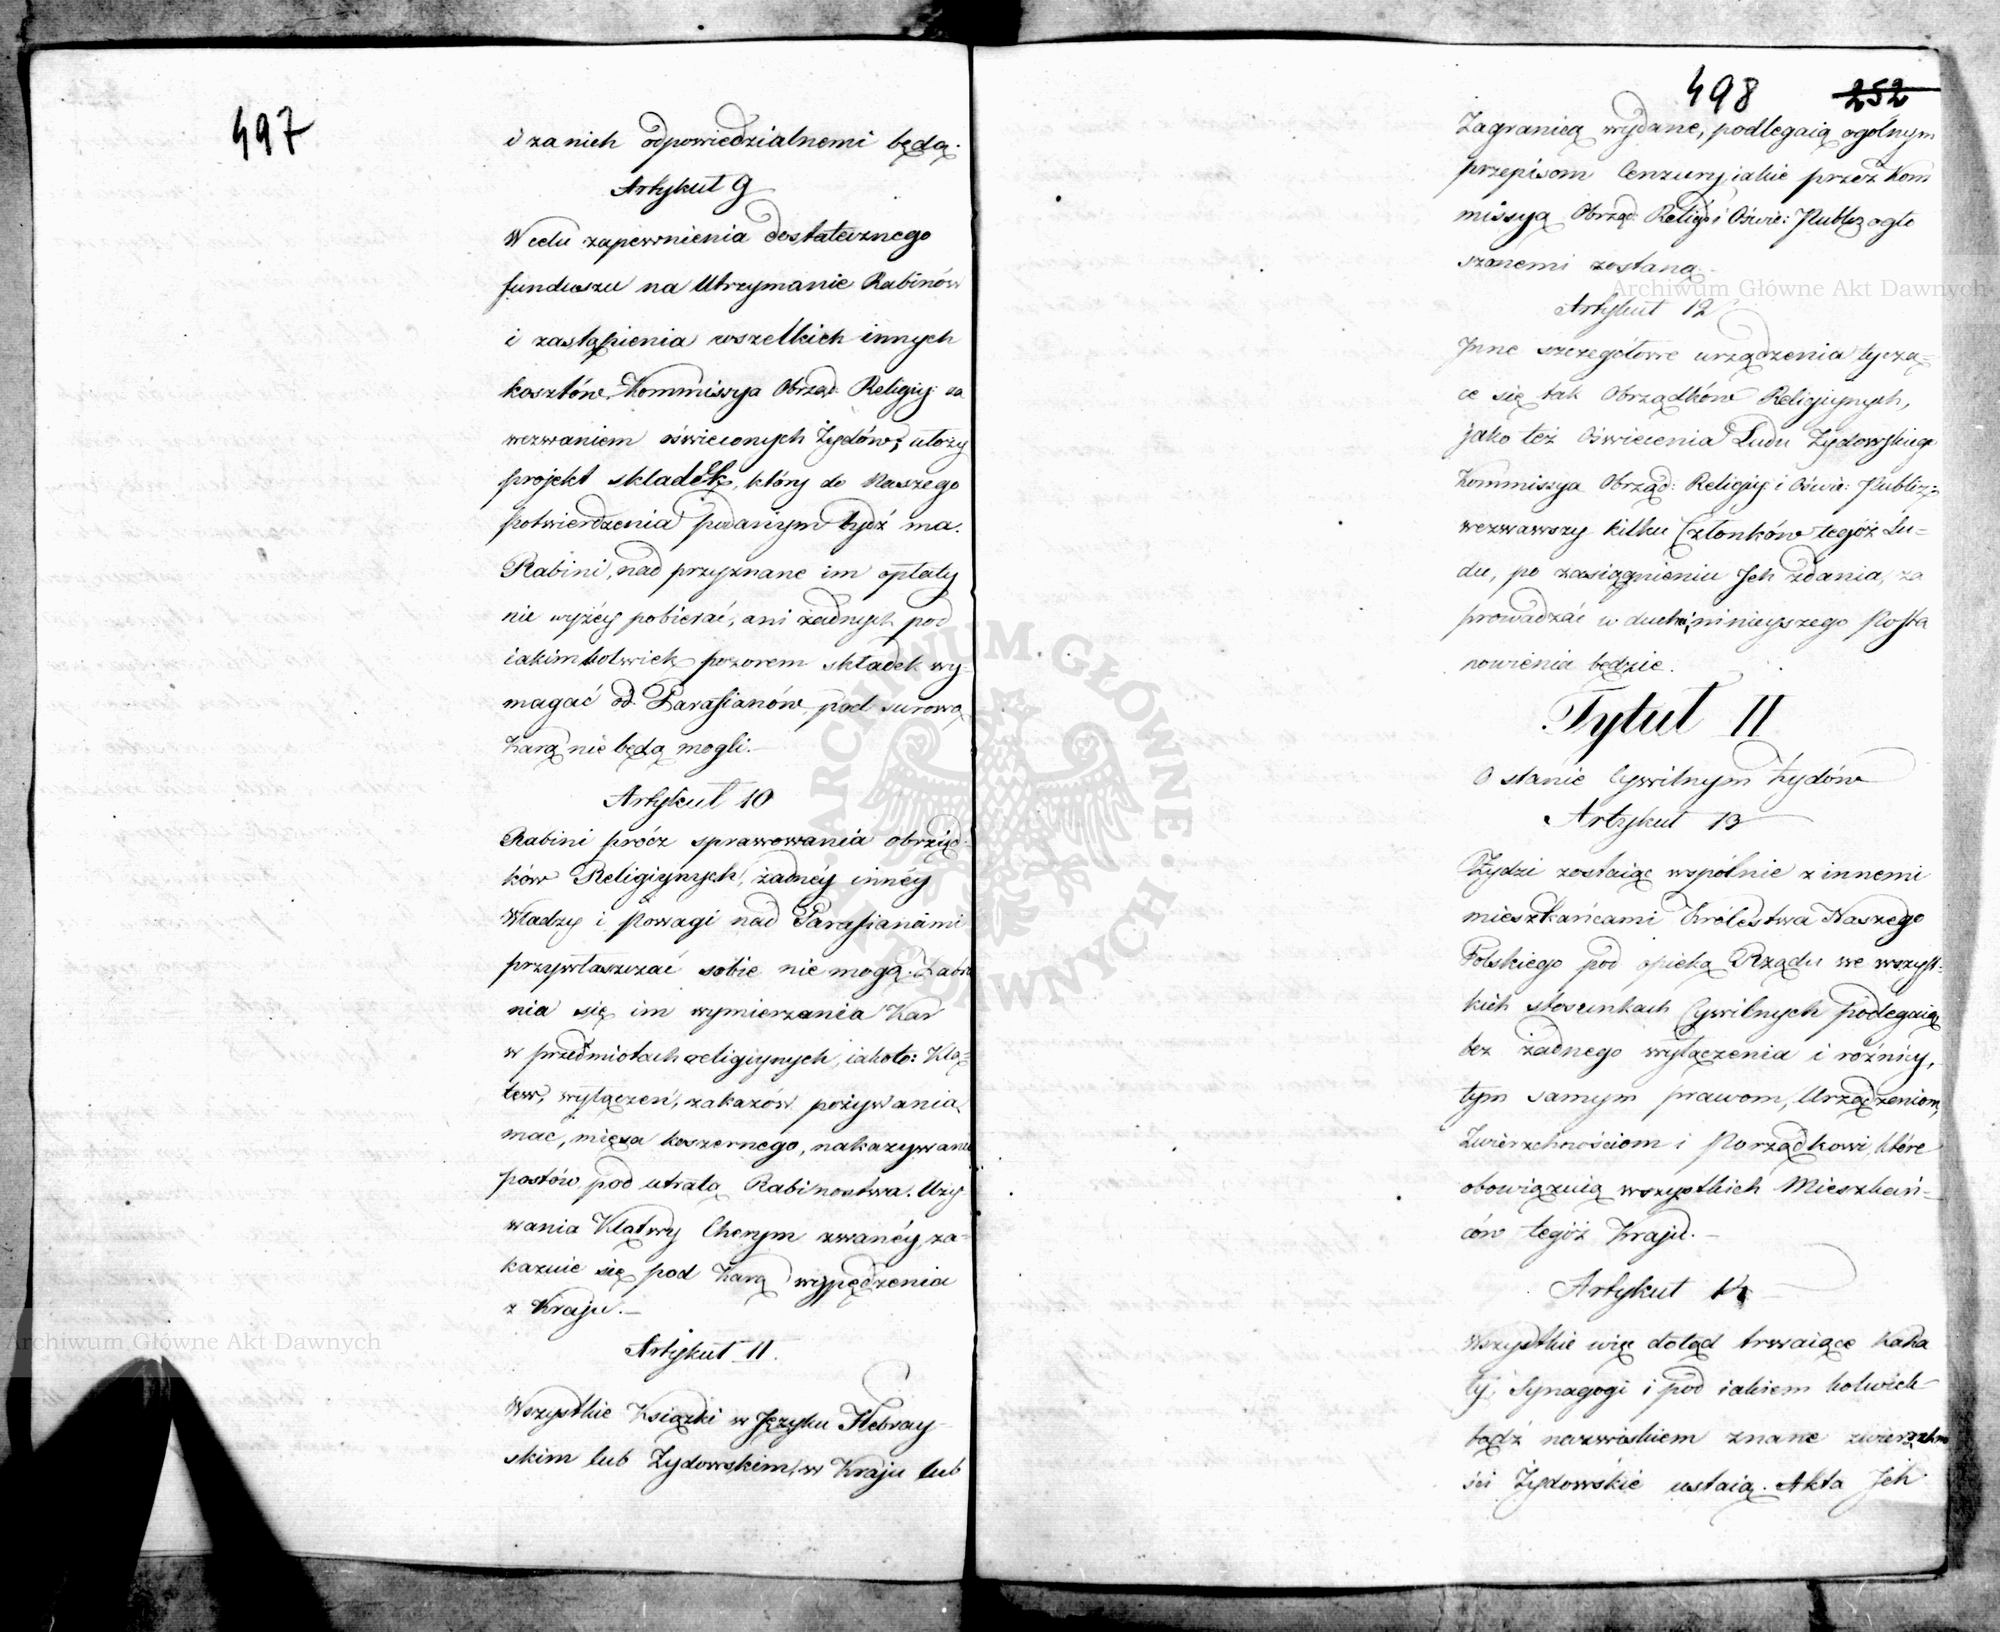 497
i za nich odpowiedzialnemi będą.
Artykuł 9
W celu zapewnienia dostatecznego
funduszu na Utrzymanie Rabinów
i zastąpienia wszelkich innych
kosztów, Kommissya Obrząd: Religiy: za
wezwaniem oświeconych Żydów, ułoży
projekt składek, który do Naszego
potwierdzenia podanym bydź ma.
Rabini, nad przyznane im opłaty
nic wyżéy pobierać, ani żadnych pod
iakimkolwiek pozorem składek wy-
magać od Parafianów, pod surową
karą nie będą mogli.
Artykuł 10
Rabini prócz sprawowania obrząd-
ków Religiynych, żadnéy innéy
Władzy i Powagi nad Parafianami
przywłaszczać sobie nie mogą. Zabra
nia się im wymierzania Kar
w przedmiotach religiynych, iakoto: Klą-
tew, wyłączeń, zakazów pożywania
mac, mięsa koszernego, nakazywania
postów, pod utratą Rabinostwa. Uży-
wania Klątwy Cherym zwanéy, za-
kazuie się pod Karą wypędzenia
z Kraju.
Artykuł 11.
Wszystkie Książki w Języku Hebray-
skim lub Żydowskim, w Kraju lub
498 252
Zagranicą wydane, podlegaią ogolnym
przepisom Cenzury, iakie przez Kom
missyą Obrząd: Religiy: i Oświe: Publicz ogło
szonemi zostaną.
Artykuł 12
Inne szczegółowe urządzenia tyczą-
ce się tak Obrządków Religiynych,
jako też Oświecenia Ludu Żydowskiego
Kommissya Obrząd: Religiy: i Oświe: Publicz:
wezwawszy kilku Członków tegóż Lu-
du, po zasiągnieniu Jch zdania, za
prowadzać w duchu ninieyszego Posta
nowienia będzie.
Tytuł II
O stanie Cywilnym Żydów
Artykuł 13
Żydzi zostaiąc wspólnie z innemi
mieszkańcami Królestwa Naszego
Polskiego pod opieką Rządu we wszyst-
kich stosunkach Cywilnych podlegaią
bez żadnego wyłączenia i rożnicy,
tym samym prawom, Urządzeniom,
Zwierzchnościom i Porządkowi, które
obowiązuią wszystkich Mieszkań-
ców tegóż Kraju.
Artykuł 14
Wszystkie więc dotąd trwaiące Kaha
ły, Synagogi i pod iakiem kolwiek-
bądź nazwiskiem znane zwierzchno
ści Żydowskie ustaią. Akta Jch
Archiwum Główne Akt Dawnych
Archiwum Główne Akt Dawnych
ARCHIWUM GŁÓWNE AKT DAWNYCH